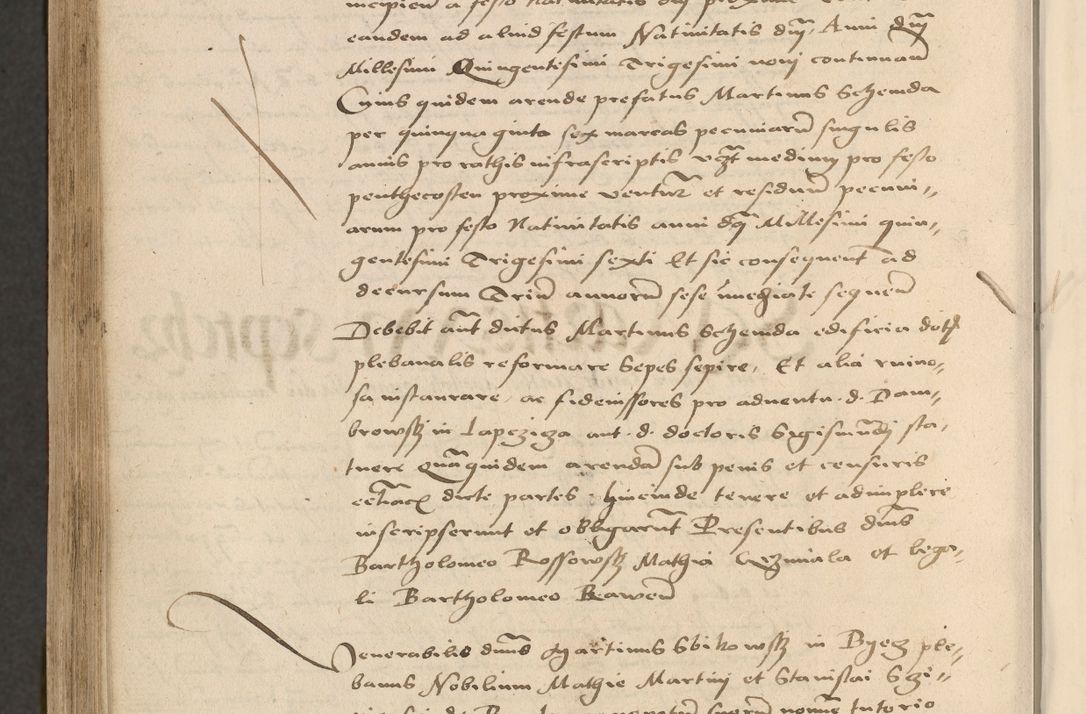 incipien a festo Nativitatis dnj proxime
eandem ad aliud festum Nativitatis dnj. Anni dnj
Millesimi Quingentesimi Trigesimi noni continuan
Cuius quidem arende prefatus Martinus Schemda
per quinquaginta sex marcas pecuniarū singulis
annis pro rathis infrascriptis vꝫt medium pro festo
penthecosten proxime ventur et residuū pecuni,,
arum pro festo Nativitatis anni dnj Millesimi quin,,
gentesimi Trigesimi sexti Et sic consequent ad
decursum Triū annorū sese immediate sequen
Debebit aut dictus Martinus Schemda edificia dotꝭ
plebanalis reformare Sepes sepire, Et alia ruino,,
sa instaurare, ac fideiussores pro adventu .d. Dam,,
browsky in Lapczicza aut .d. doctoris Sigismūdj sta,
tuere Quāquidem arendā sub penis et censuris
dicte partes hincinde tenere et adimplere
inscripserunt et obligarūt Presentibus dnis
Bartholomeo Rossowsky Mathia et lega,,
li Bartholomeo
Venerabilis dnus Martinus Sbikowsky in Byecz ple,,
banus Nobilium Mathie Martini et Stanislai
nomine tutorio